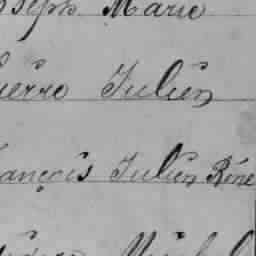 oseph Marie
ierre Julien
rançois Julien Réne